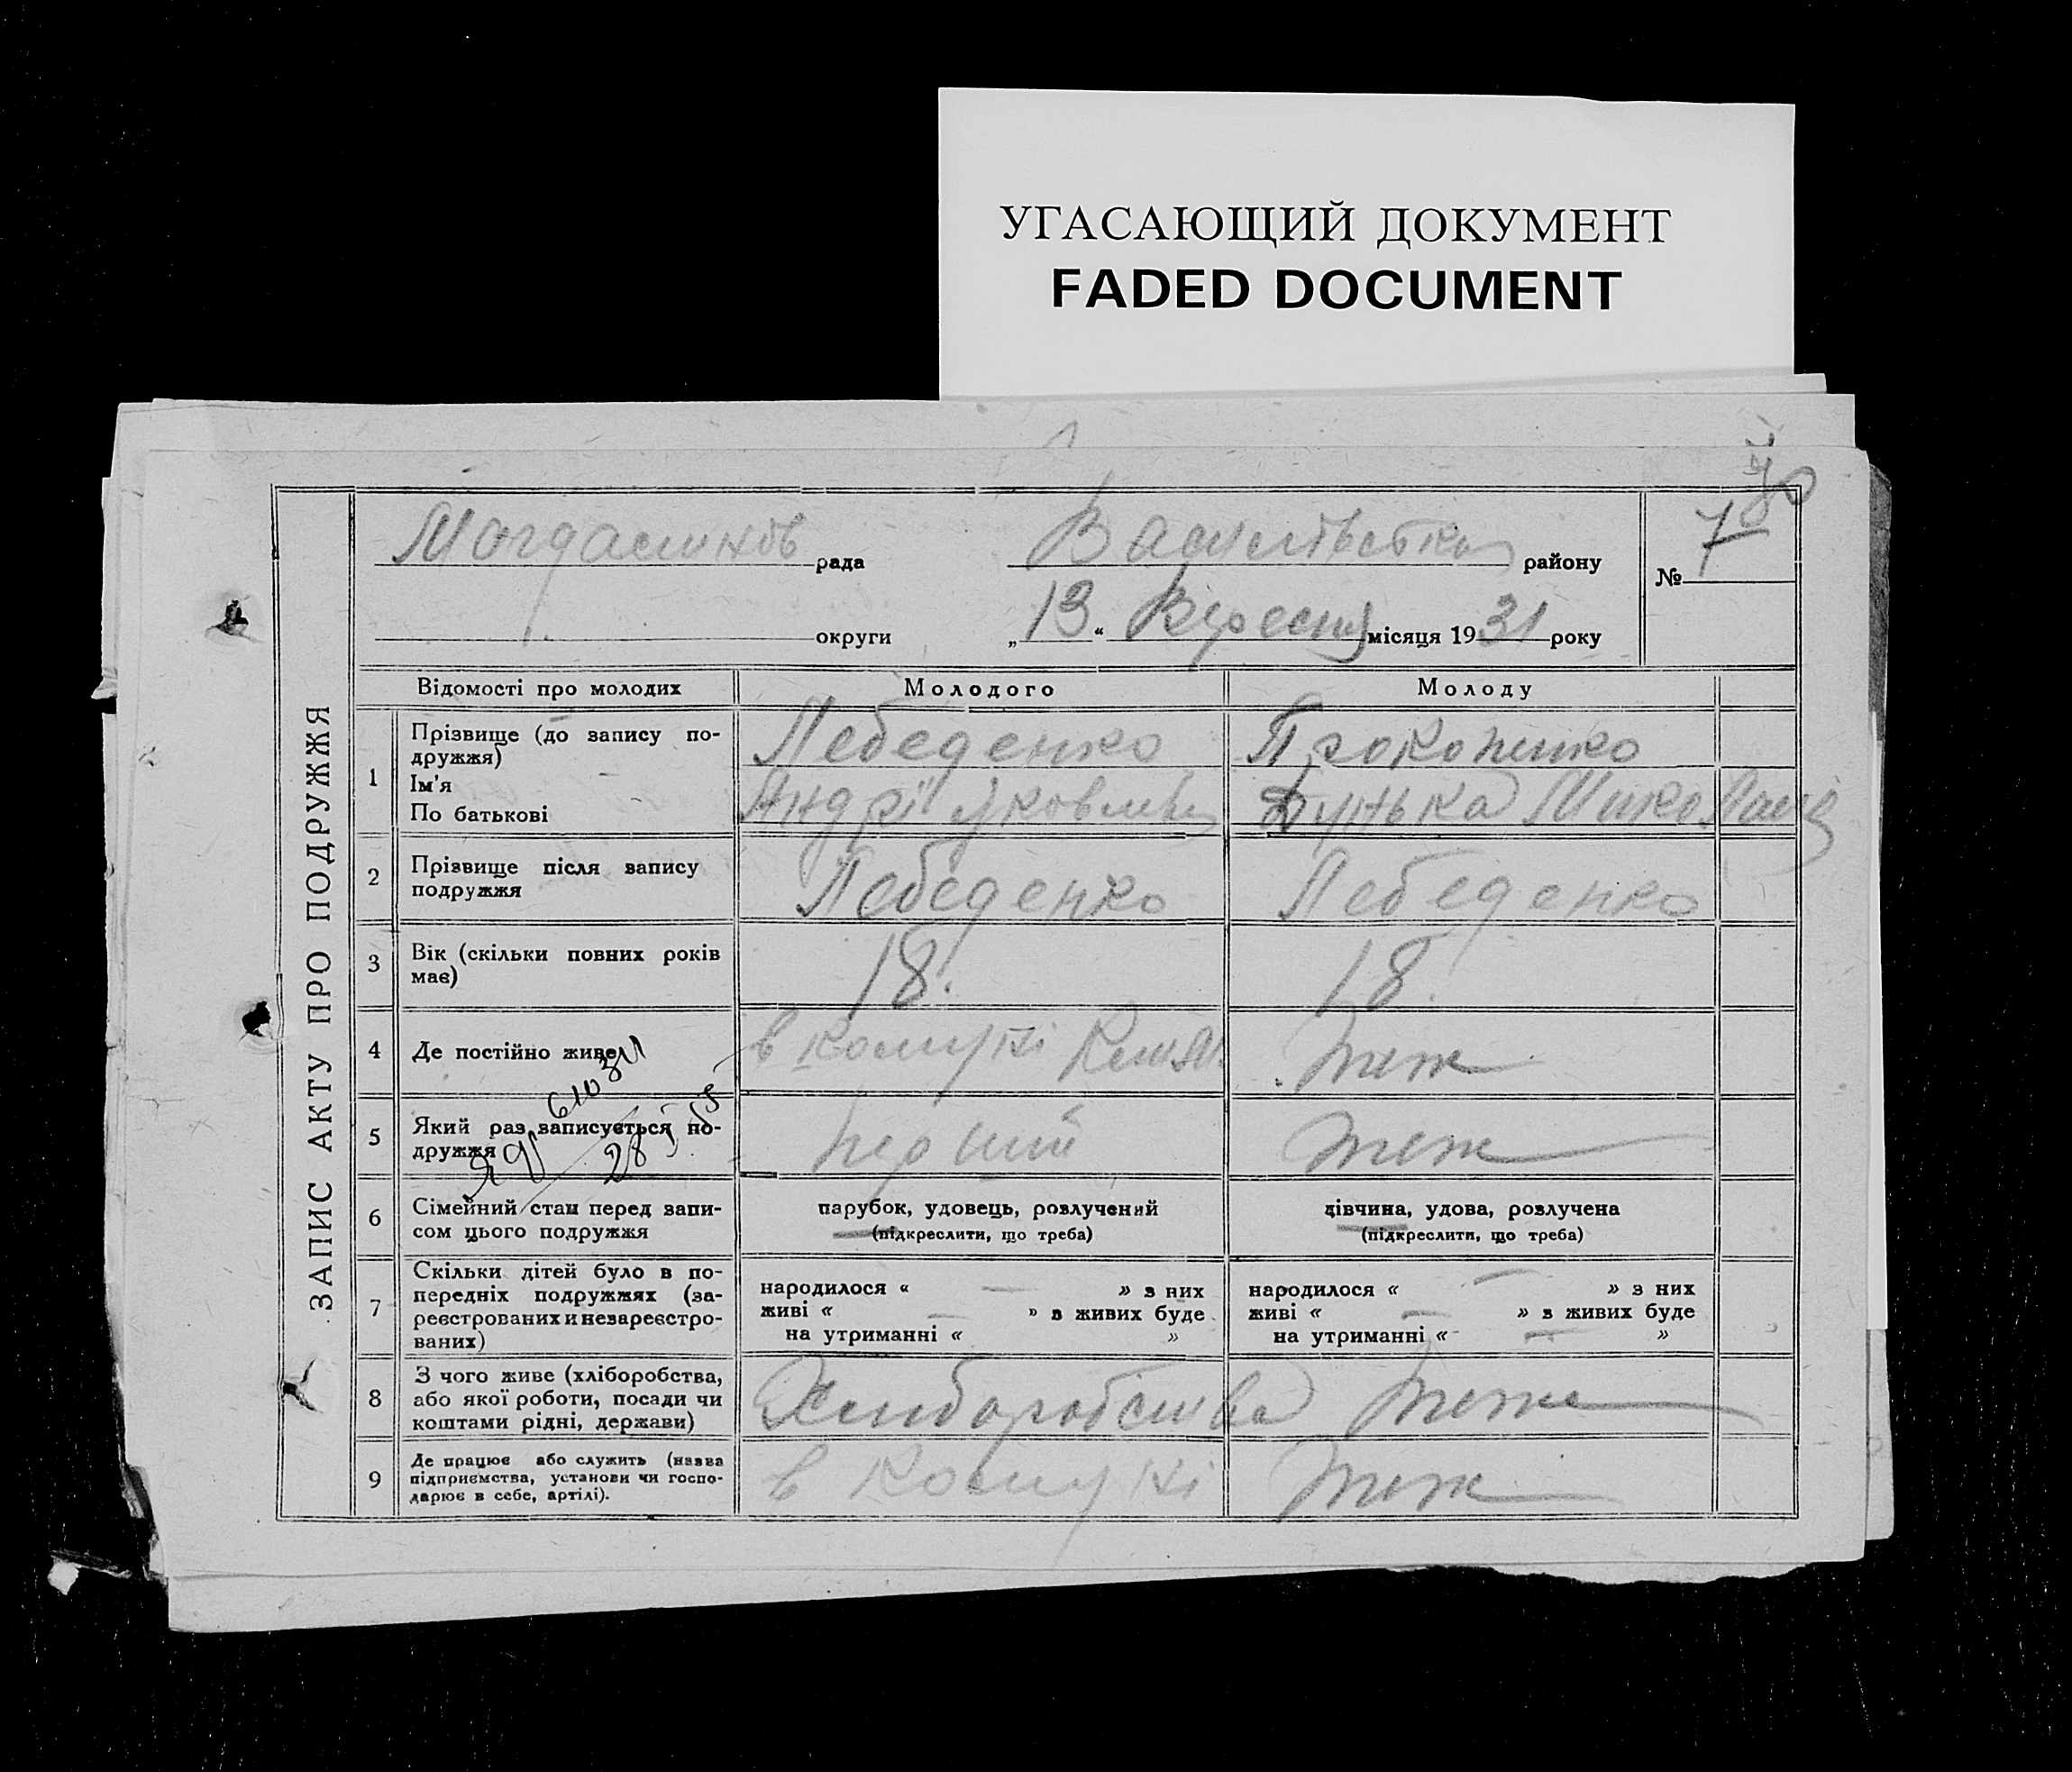 УГАСАЮЩИЙ ДОКУМЕНТ
FADED DOCUMENT
ЗАПИС АКТУ ПРО ПОДРУЖЖЯ
рада
району
№ 7
округи
„13“ Вересня місяця 1931 року
Відомості про молодих
Молодого
Молоду
1
Прізвище (до запису по-
дружжя)
Ім'я
По батькові
Лебеденко
Андрій
Прокопенко
Дунька
2
Прізвище після запису
подружжя
Лебеденко
Лебеденко
3
Вік (скільки повних років
має)
18.
18.
4
Де постійно живе
в комуні
теж
5
Який раз записується по-
дружжя
перший
теж
6
Сімейний стан перед запи-
сом цього подружжя
парубок, удовець, розлучений
(підкреслити, що треба)
дівчина, удова, розлучена
(підкреслити, що треба)
7
Скільки дітей було в по-
передніх подружжях (за-
реєстрованих и незареєстро-
ваних)
народилося « — » з них
живі « — » з живих буде
на утриманні « »
народилося « — » з них
живі « — » з живих буде
на утриманні « — »
8
З чого живе (хліборобства,
або якої роботи, посади чи
коштами рідні, держави)
Хлиборобства
теж
9
Де працює або служить (назва
підприємства, установи чи госпо-
дарює в себе, артілі).
в комуні
теж